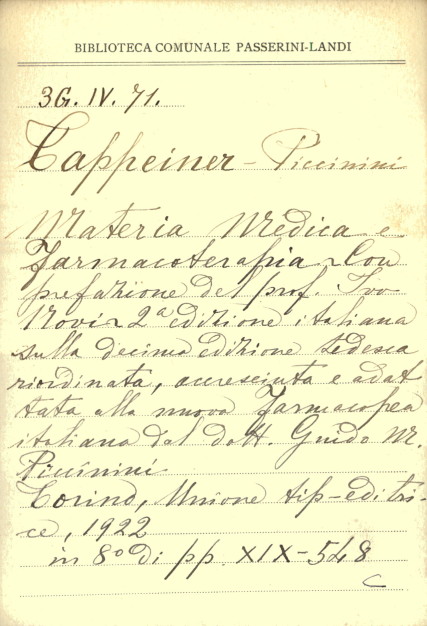 BIBLIOTECA COMUNALE PASSERINI-LANDI
3G. IV. 71.
Tappeiner - Piccinini
Materia Medica e
Farmacoterapia - Con
prefazione del prof. Ivo
Novi - 2ª edizione italiana
sulla decima edizione tedesca
riordinata, accresciuta e adat
tata alla nuova Farmacopea
italiana dal dott. Guido M.
Piccinini
Torino, Unione tip-editri-
ce, 1922
in 8º di pp. XIX-548
C